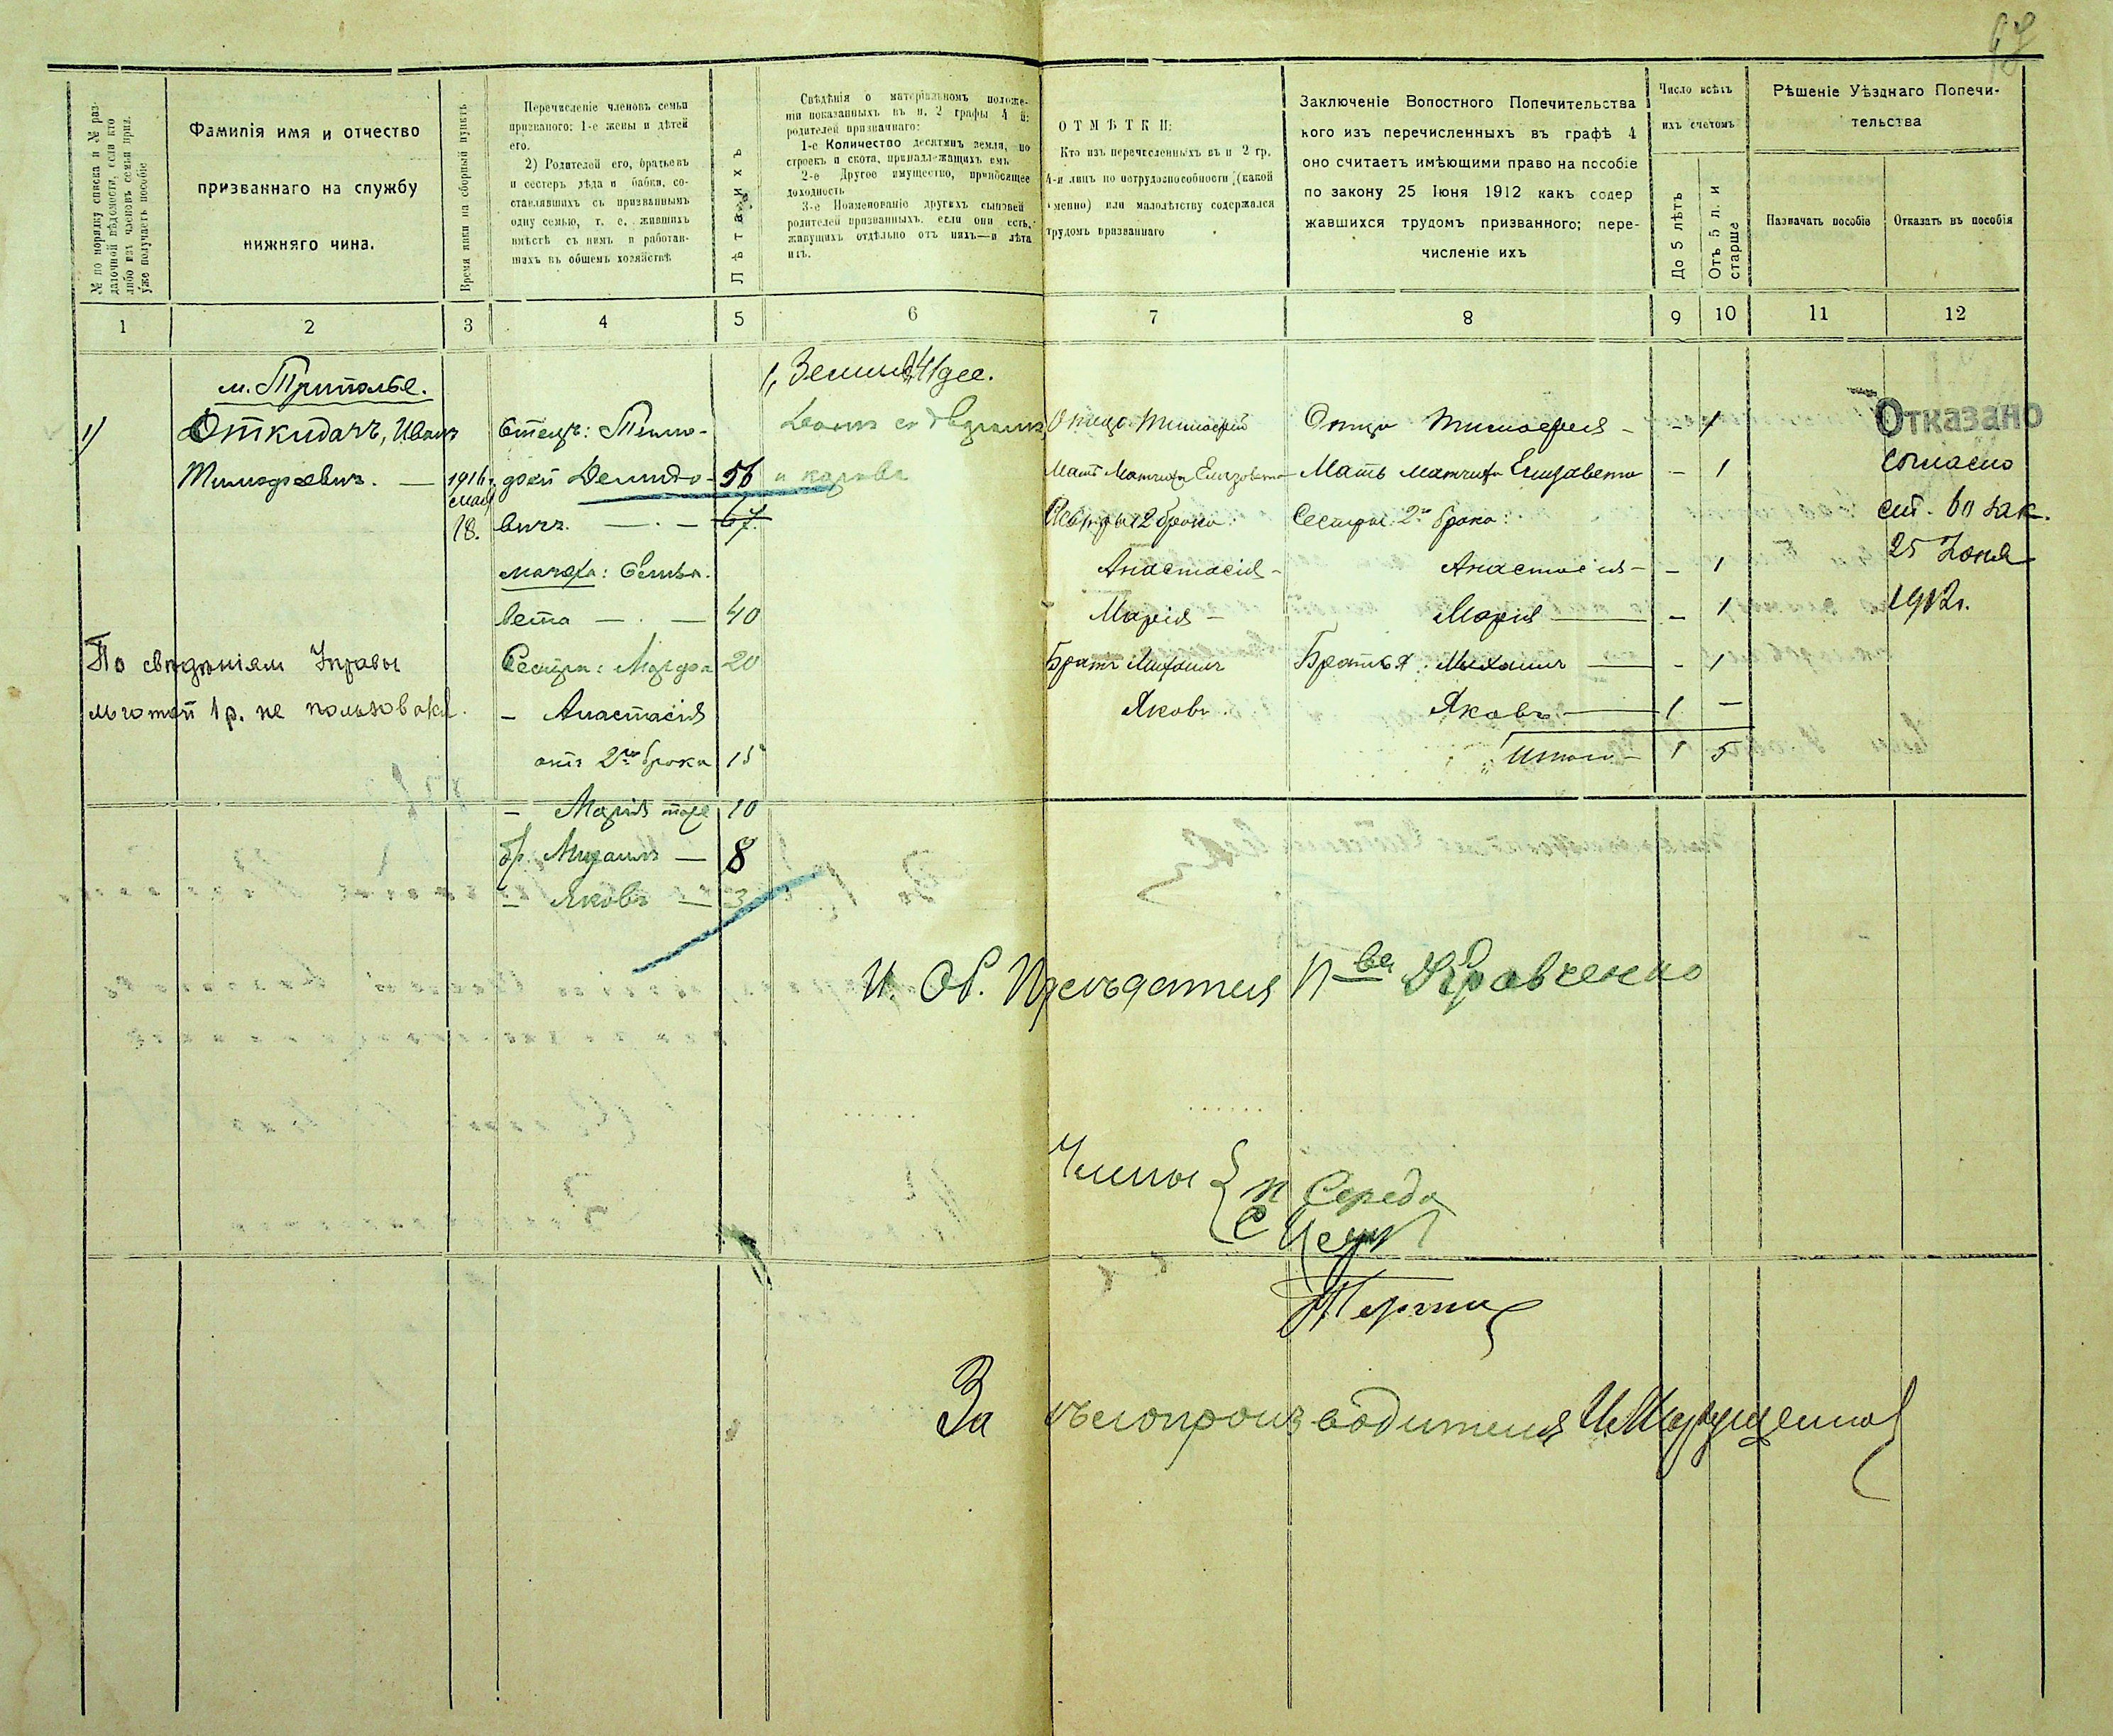 № по порядку списка и № раз-
даточной вѣдомости, если кто
либо изъ членовъ семьи приз.
уже получаетъ пособіе
Фамилія имя и отчество
призваннаго на службу
нижняго чина.
Время явки на сборный пунктъ
Перечисленіе членовъ семьи
призваного: 1-е жены и дѣтей
его.
2) Родителей его, братьевъ
и сестеръ дѣда и бабки, со-
ставлявшихъ съ призваннымъ
одну семью, т. е. жившихъ
вмѣстѣ съ нимъ и работав-
шихъ въ общемъ хозяйствѣ
Лѣта ихъ
Свѣдѣнія о матеріальномъ положе-
ніи показанныхъ въ п. 2 графы 4 й:
родителей призваннаго:
1-е Количество десятинъ земли, по
строекъ и скота, принадлежащихъ емъ
2-е Другое имущество, приносящее
доходность
3-е Поименованіе другихъ сыновей
родителей призванныхъ, если они есть,
живущихъ отдѣльно отъ нихъ—и лѣта
ихъ.
ОТМѢТКИ:
Кто изъ перечсленныхъ въ п 2 гр.
4-й лицъ по нетрудоспособности (какой
именно) или малолѣтству содержался
трудомъ призваннаго
Заключеніе Вопостного Попечительства
кого изъ перечисленныхъ въ графѣ 4
оно считаетъ имѣющими право на пособіе
по закону 25 Іюня 1912 какъ содер
жавшихся трудомъ призванного; пере-
численіе ихъ
Число всѣхъ
ихъ счетомъ
До 5 лѣтъ
Отъ 5 л. и
старше
Рѣшеніе Уѣзднаго Попечи-
тельства
Назначать пособіе
Отказать въ пособія
1 2 3 4 5 6 7 8 9 10 11 12
м. Триполье.
1) Откидачъ, Иванъ
Тимофеевичъ. —
1916г.
мая
18.
Отецъ: Тимо-
фей Демидо- 56
вичъ. — 67
мачеха: Елиза-
вета — 40
Сестра: Марфа 20
— Анастасія
отъ 2го брака 15
— Марія тоже 10
бр. Михаилъ — 8
— Яковъ — 3
По свѣдѣніям Управы
льготой 1 р. не пользовался.
1, Земли 41 дес.
Домъ со дворомъ
и корова
Отца Тимофей
Мать Мачиха Елизовета
Сестры 2 брака:
Анастасія —
Марія —
Братъ Михаилъ
Яковъ.
Отца Тимофея — – 1
Мать мачиха Елизавета – 1
Сестры 2го брака:
Анастасія — – 1
Марія — – 1
Братья: Михаилъ — – 1
Яковъ — 1 –
Итого — 1 5
Отказано
согласно
ст. зак.
25 Іюня
1912г.
И. Об. Предсѣдателя П-ва Кравченко
Члены { Н Середа
За дѣлопроизводителя